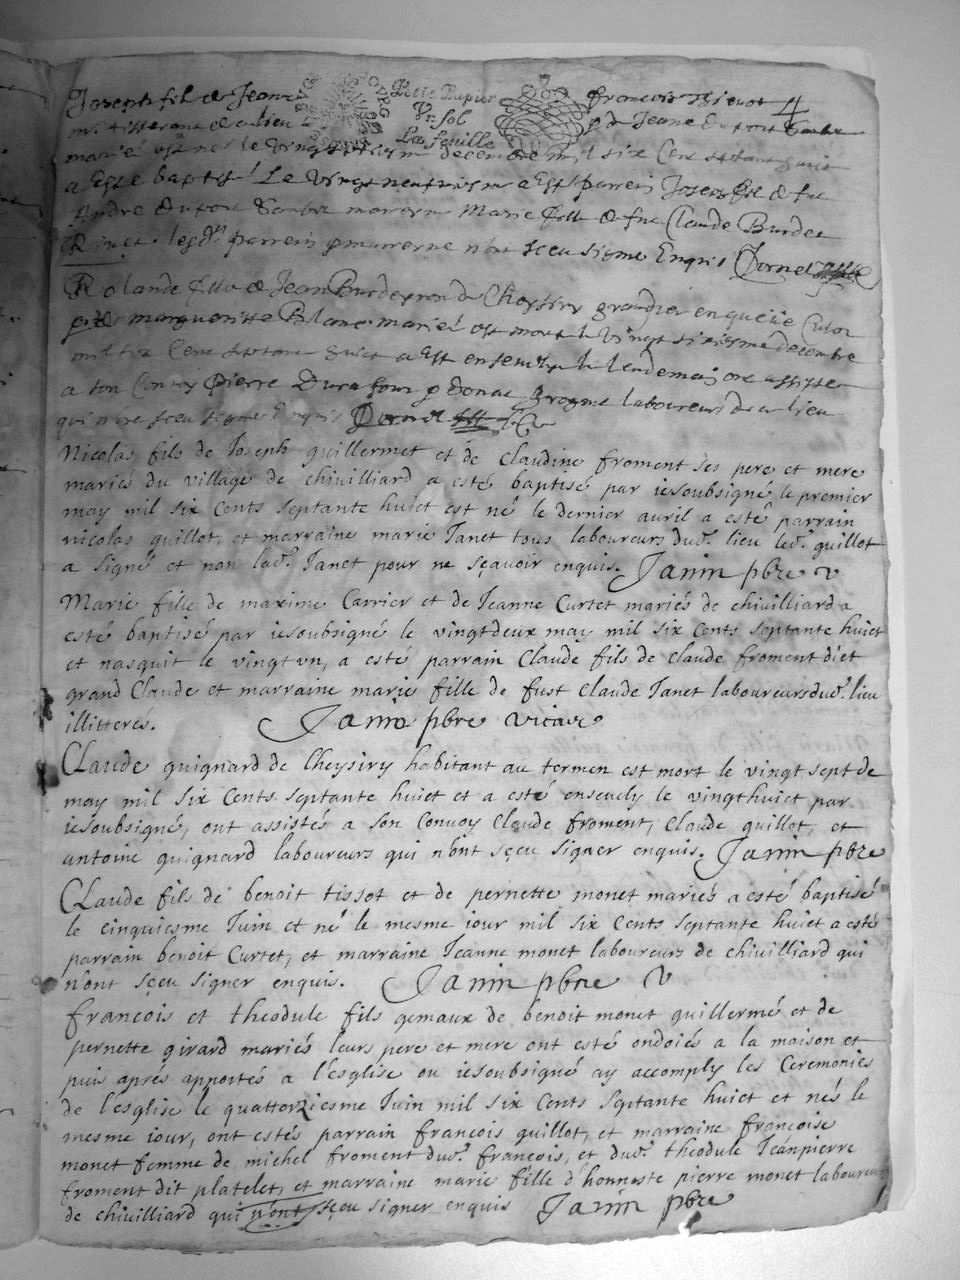 Joseph fils de Jeanc François Thievot
Petit Papier
Vn sol
La feuille
pd Jeane Dupont
mariés est né le vingt decembre mil six Cent septante huit
a Esté baptisé Le vingt neufvieme a Est parrein Joseph fil de fut
Andre Dupont marreyne Marie fille de fut Claude Burdet
parrein marrene n'ont sceu signe Enquis Dornet
Rolande fille de Jean Burdeyron de Cheysiry grangier en
margueritte Blanc mariés est mort le vingt sixiesme decembre
mil six Cent septante huict a Est ensevely le lendemain ont assisté
a son Convoy Pierre Dura four laboureurs de ce lieu
qui n'ont sceu signe Enquis Dornet
Nicolas fils de Joseph guillermet et de Claudine froment ses pere et mere
mariés du village de chivilliard a esté baptisé par iesoubsigné le premier
may mil six cents septante huict est né le dernier avril a esté parrain
nicolas guillot, et marraine marie Janet tous laboureurs dud. lieu led. guillot
a signé et non lad. Janet pour ne sçavoir enquis. Janin pbre v
Marie fille de maxime Carrier et de Jeanne Curtet mariés de chivilliard a
esté baptisée par iesoubsigné le vingtdeux may mil six cents septante huict
et nasquit le vingt vn, a esté parrain Claude fils de claude froment dict
grand Claude et marraine marie fille de fust Claude Janet laboureurs dud. lieu
illitteres. Janin pbre vicaire
Claude guignard de Cheysiry habitant au termen est mort le vingt sept de
may mil six cents septante huict et a esté ensevely le vingthuict par
iesoubsigné, ont assistés a son convoy Claude froment, Claude guillot, et
antoine guignard laboureurs qui n'ont sçeu signer enquis. Janin pbre
Claude fils de benoit tissot et de pernette monet mariés a esté baptisé
le cinquiesme Juin et né le mesme iour mil six cents septante huict a esté
parrain benoit Curtet, et marraine Jeanne monet laboureurs de chivilliard qui
n'ont sçeu signer enquis. Janin pbre V
francois et theodule fils gemaux de benoit monet guillermé et de
pernette girard mariés leurs pere et mere ont esté ondoiés a la maison et
puis aprés apportés a l'esglise ou iesoubsigné ay accomply les Ceremonies
de l'esglise le quattorziesme Juin mil six cents septante huict et nés le
mesme iour, ont estés parrain françois guillot, et marraine françoise
monet femme de michel froment dud. françois, et dud. theodule Jeanpierre
froment dit platelet, et marraine marie fille d'honneste pierre monet laboureurs
de chivilliard qui n'ont sçeu signer enquis Janin pbre